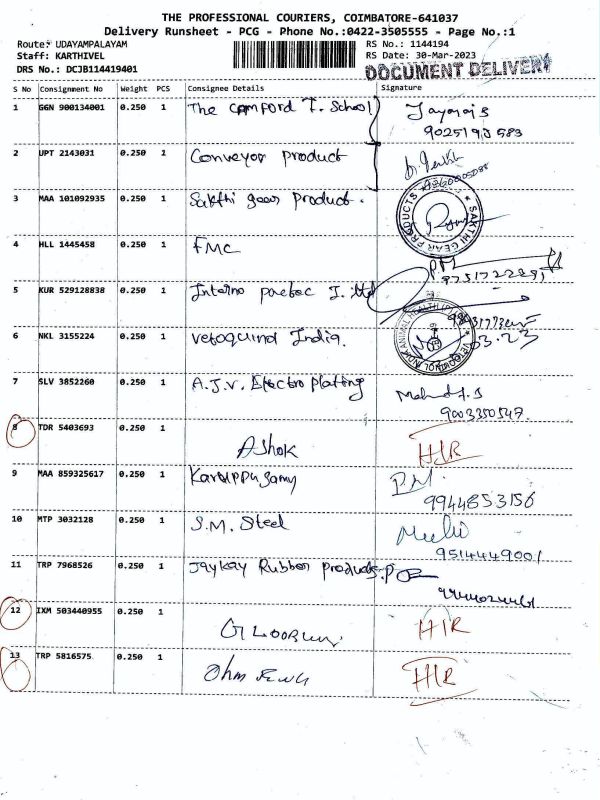 THE PROFESSIONAL COURIERS, COIMBATORE-641037
Delivery Runsheet - PCG - Phone No.:0422-3505555 - Page No.:1
Route: UDAYAMPALAYAM
RS No.: 1144194
Staff: KARTHIVEL
RS Date: 30-Mar-2023
DRS No.: DCJB114419401
DOCUMENT DELIVERY
S No Consignment No Weight PCS Consignee Details Signature
1 GGN 900134001 0.250 1 The School
2 UPT 2143031 0.250 1 Conveyor product
3 MAA 101092935 0.250 1 Sakthi gear product.
SAKTHI GEAR PRODUCTS
4 HLL 1445458 0.250 1 FMC
5 KUR 529128838 0.250 1
6 NKL 3155224 0.250 1 vetoquinol India.
7 SLV 3852260 0.250 1 A.J.V. Electro plating
9003350547.
8 TDR 5403693 0.250 1
Ashok HIR
9 MAA 859325617 0.250 1 Karuppusamy
9944853156
10 MTP 3032128 0.250 1 S.M. Steel
9514449001
11 TRP 7968526 0.250 1 Jaykay Rubber products
12 IXM 503440955 0.250 1
HIR
13 TRP 5816575 0.250 1
Ohm HIR